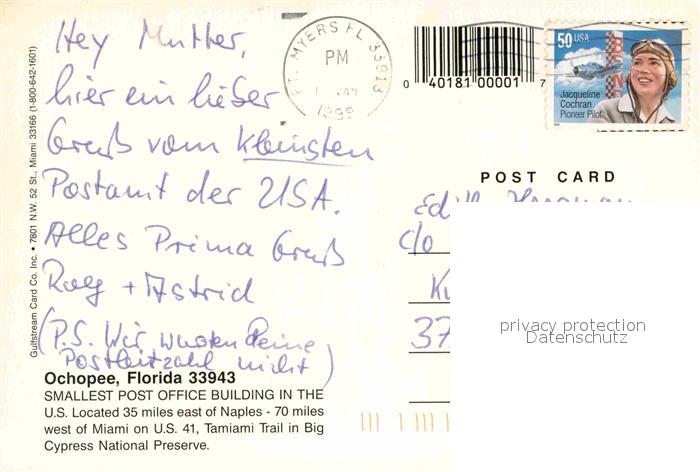 Hey Mutter,
hier ein lieber
Gruß vom Kleinsten
Postamt der USA.
Alles Prima Gruß
Rolf + Astrid
(P.S. Wir wusten Deine
Postleitzahl nicht)
Ochopee, Florida 33943
SMALLEST POST OFFICE BUILDING IN THE
U.S. Located 35 miles east of Naples - 70 miles
west of Miami on U.S. 41, Tamiami Trail in Big
Cypress National Preserve.
Gulfstream Card Co. Inc. • 7801 N.W. 52 St., Miami 33166 (1-800-642-1601)
FT. MYERS FL 33913
PM
1999
0 40181 00001 7
50 USA
Jacqueline
Cochran
Pioneer Pilot
POST CARD
c/o
37
privacy protection
Datenschutz